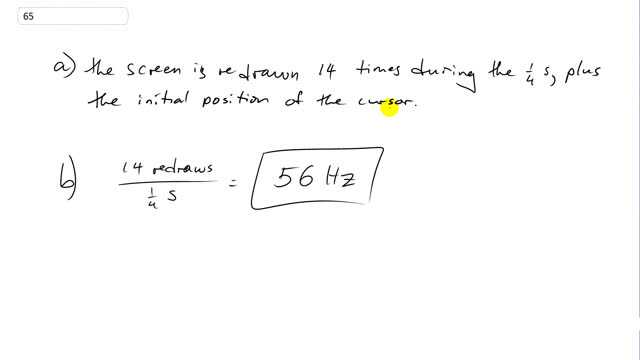 65
a) the screen is redrawn 14 times during the 1/4 s, plus
the initial position of the cursor.
b) 14 redraws / 1/4 s = 56 Hz